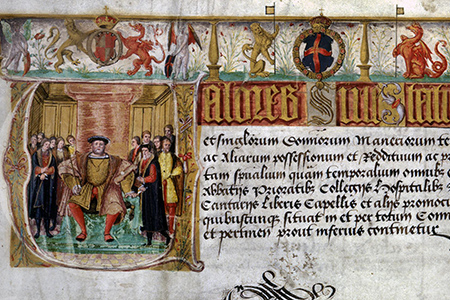 Valores
et singlorum Dominiorum Maneriorum te
ac Aliarum possessionum et Reddituum ac p
spualium quam temporalium omnibus
Abbathijs Prioratib Collegijs Hospitalib
Cantarijs Liberis Capellis et alijs promoc
quibuscunque situat in et per totum Com
et pertinen prout inferius continetur